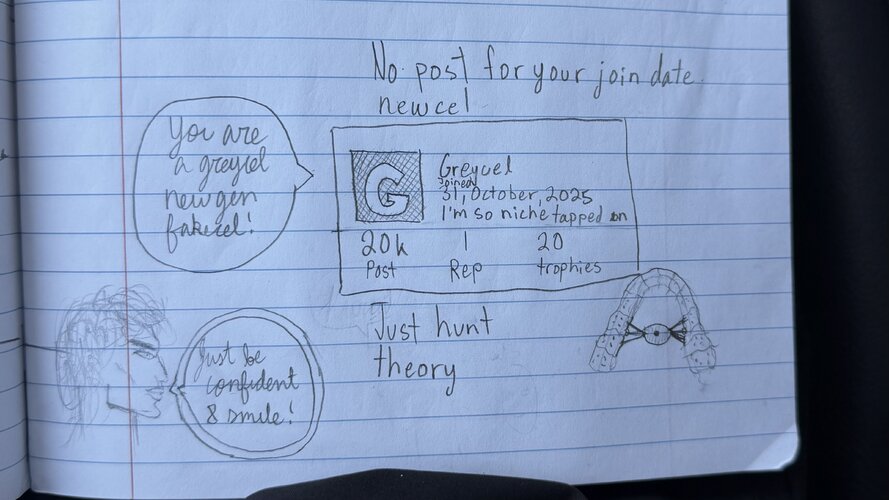 No post for your join date
newcel
You are
a greycel
newgen
fakecel!
G
Greycel
Joined
31, October, 2025
I'm so niche tapped on
20k
1
20
Post
Rep
trophies
Just hunt
theory
Just be
confident
& smile!